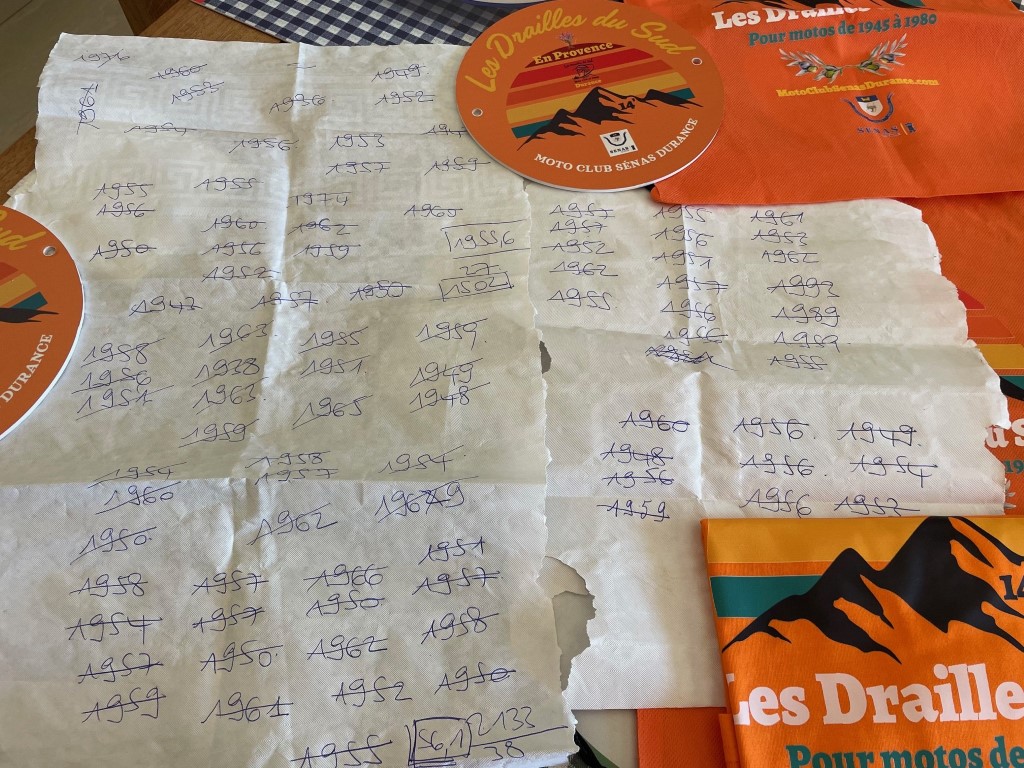 1976
1960 1949
1961
1953 1936 1952
1954
1956 1953
1957 1959
1955 1955
1974
1956 1960
1960 1962
1950 1956 1959
1955,6
1952
27
1502
1947 1957 1950
1958 1963 1955 1959
1956 1938 1951 1949
1951 1963 1965 1948
1959
1954 1958 1954
1957
1960
1950 1962
1951
1958 1957 1966 1957
1954 1957 1950 1958
1957 1950 1962 1950
1959 1961 1952
1955 56,1 2133
38
1957 1955 1961
1957 1956 1953
1952 1951 1962
1962 1957 1993
1955 1956 1989
1956 1959
1955
1960 1956 1949
1948 1956 1954
1956
1959 1956 1952
Les Drailles du Sud
En Provence
Durance
14
SÉNAS
MOTO CLUB SÉNAS DURANCE
Les Draille
Pour motos de 1945 à 1980
MotoClubSenasDurance.com
SÉNAS
Sud
DURANCE
Sud
14
Les Draille
Pour motos de